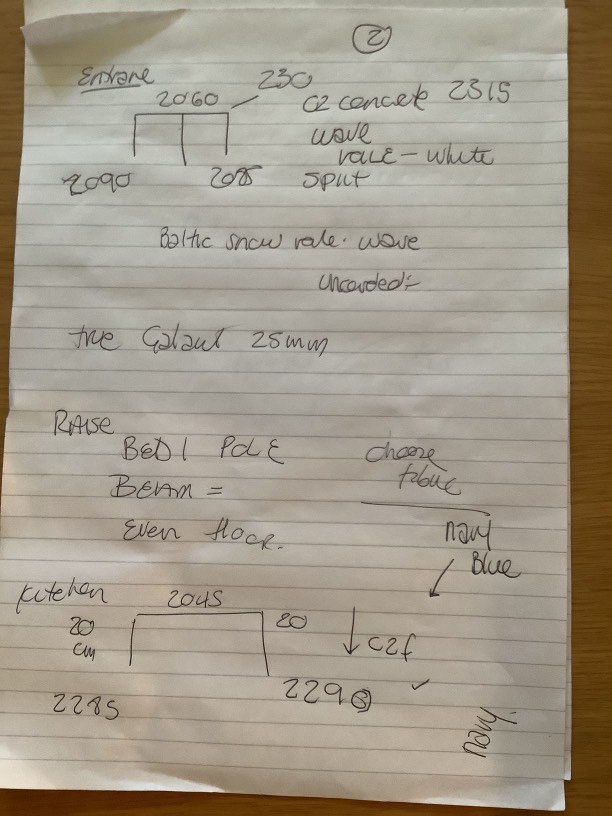 2
Entrane
230
2060
C2 concrete 2315
wave
vale - white
2090
2085
split
Baltic snow vale. wave
uncorded:-
true Galaxy 25mm
RAISE
BED 1 POLE
BEAM =
Even floor.
choose
fabric
navy
Blue
Kitchen
2045
20
cm
20
c2f
2285
2290
navy.